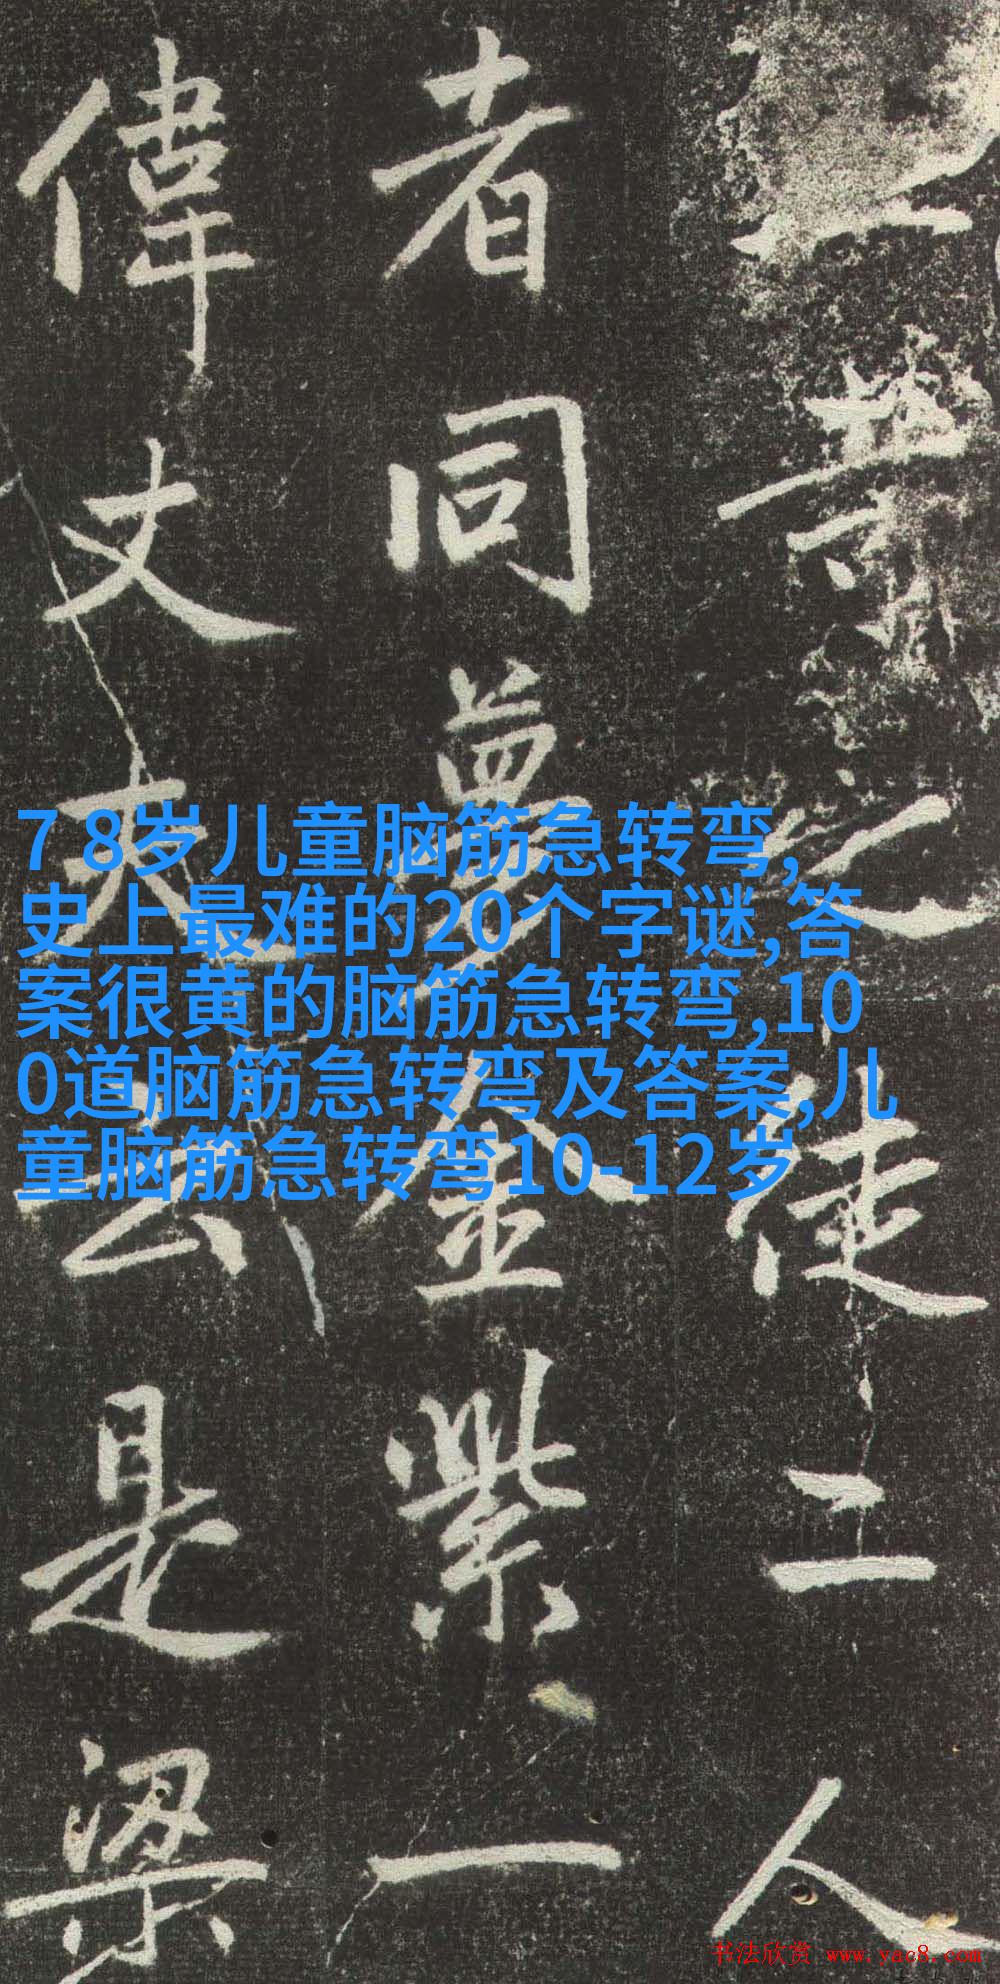 之徒二人
者同夢金紫一
偉丈夫云是梁
7 8岁儿童脑筋急转弯,
史上最难的20个字谜,答
案很黄的脑筋急转弯,10
0道脑筋急转弯及答案,儿
童脑筋急转弯10-12岁
书法欣赏 www.yac8.com